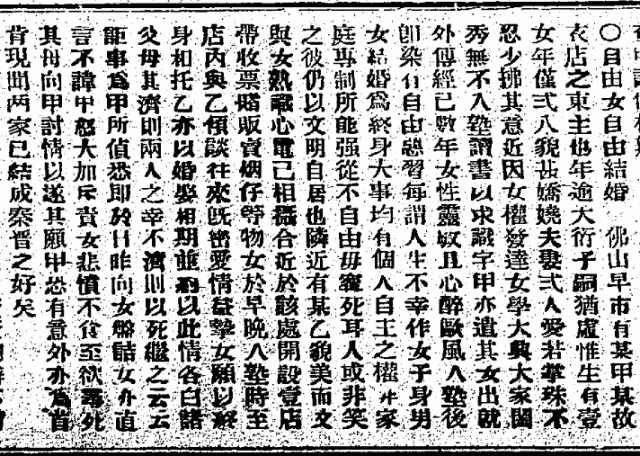 〇自由女自由結婚　佛山早市有某甲某故
衣店之東主也年逾大衍子嗣猶虛惟生有壹
女年僅弍八貌甚嬌嬈夫妻弍人愛若掌珠不
忍少拂其意近因女權發達女學大興大家閨
秀無不入塾讀書以求識字甲亦遣其女出就
外傅經已數年女性靈敏且心醉歐風入塾後
卽染有自由惡習每謂人生不幸作女子身男
女結婚爲終身大事均有個人自主之權非家
庭專制所能强從不自由毋寧死耳人或非笑
之彼仍以文明自居也隣近有某乙貌美而文
與女熟識心電已相攝合近於該處開設壹店
帶收票賭販賣烟仔等物女於早晚入塾時至
店內與乙傾談往來旣密愛情益摯女願以終
身相托乙亦以婚娶相期重約以此情各白諸
父母其濟則兩人之幸不濟則以死繼之云云
詎事爲甲所偵悉卽於日昨向女盤詰女亦直
言不諱甲怒大加斥責女悲憤不食至欲尋死
其母向甲討情以遂其願甲恐有意外亦爲首
肯現聞两家已結成秦晉之好矣